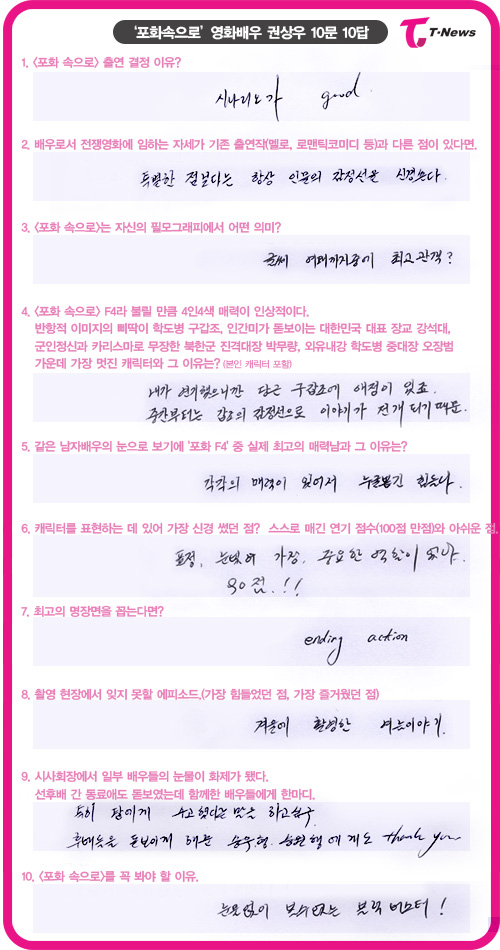 '포화속으로' 영화배우 권상우 10문 10답
T·News
1. <포화 속으로> 출연 결정 이유?
시나리오가 good.
2. 배우로서 전쟁영화에 임하는 자세가 기존 출연작(멜로, 로맨틱코미디 등)과 다른 점이 있다면.
특별한 점보다는 항상 인물의 감정선을 신경쓴다.
3. <포화 속으로>는 자신의 필모그래피에서 어떤 의미?
글쎄 여태까지중에 최고관객?
4. <포화 속으로> F4라 불릴 만큼 4인4색 매력이 인상적이다.
반항적 이미지의 삐딱이 학도병 구갑조, 인간미가 돋보이는 대한민국 대표 장교 강석대,
군인정신과 카리스마로 무장한 북한군 진격대장 박무랑, 외유내강 학도병 중대장 오장범
가운데 가장 멋진 캐릭터와 그 이유는? (본인 캐릭터 포함)
내가 연기했으니깐 당근 구갑조에 애정이 있죠.
중간부터는 갑조의 감정선으로 이야기가 전개되기때문.
5. 같은 남자배우의 눈으로 보기에 '포화 F4' 중 실제 최고의 매력남과 그 이유는?
각각의 매력이 있어서 누굴뽑긴 힘들다.
6. 캐릭터를 표현하는 데 있어 가장 신경 썼던 점? 스스로 매긴 연기 점수(100점 만점)와 아쉬운 점.
표정, 눈빛이 가장. 중요한 역할이 있다.
90점.!!
7. 최고의 명장면을 꼽는다면?
ending action
8. 촬영 현장에서 잊지 못할 에피소드.(가장 힘들었던 점, 가장 즐거웠던 점)
겨울에 촬영한 여름이야기.
9. 시사회장에서 일부 배우들의 눈물이 화제가 됐다.
선후배 간 동료애도 돋보였는데 함께한 배우들에게 한마디.
특히 탑에게 수고했다는 말을 하고싶구
후배들을 돋보이게 해준 승우형. 승원형에게도 thank you
10. <포화 속으로>를 꼭 봐야 할 이유.
눈물없이 볼수없는 블럭버스터!